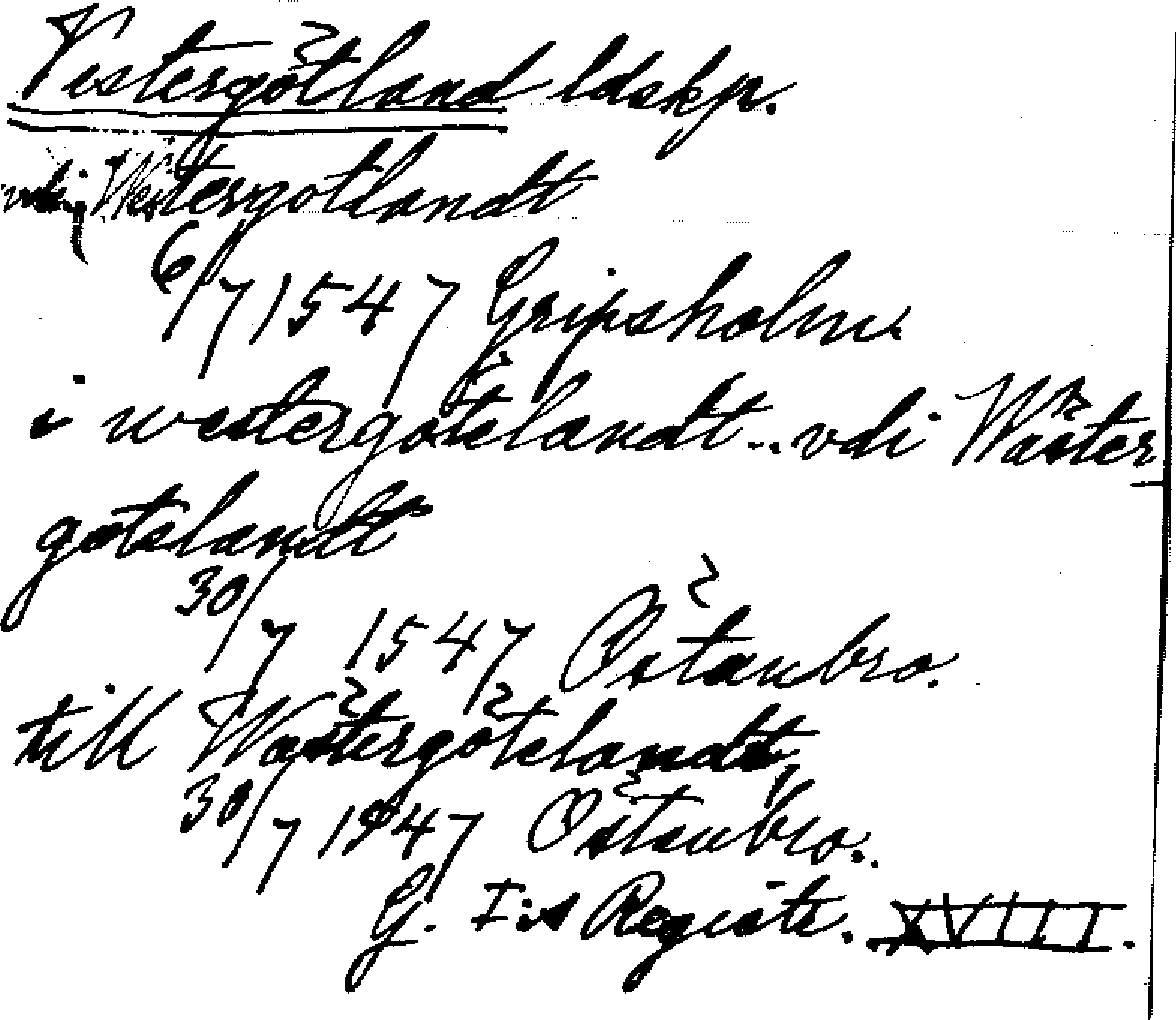 Vestergötland ldskp.
vdij Westergotlandt
6/7 1547 Gripsholm
i westergötslandt .. vdi Wäster
götslandt
30/7 1547 Östanbro.
till Wästergötslandt
30/7 1547 Östanbro.
G. I:s Registr. XVIII.